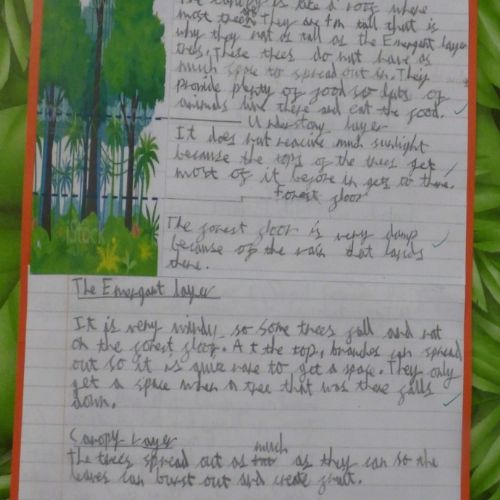 The canopy is like a roof where
most trees are. They are 40m tall that is
why they not as tall as the Emergent layer
trees. These trees do not have as
much space to spread out in. They
provide plenty of food so lots of
animals live there and eat the food.
Understory layer
It does not receive much sunlight
because the tops of the trees get
most of it before it gets to there.
Forest floor
The forest floor is very damp
because of the rain that lands
there.
iStock
The Emergant layer
It is very windy so some trees fall and rot
on the forest floor. At the top, branches can spread
out so it is quite rare to get a space. They only
get a space when a tree that was there falls
down.
Canopy Layer
The trees spread out as much as they can so the
leaves can burst out and create fruit.